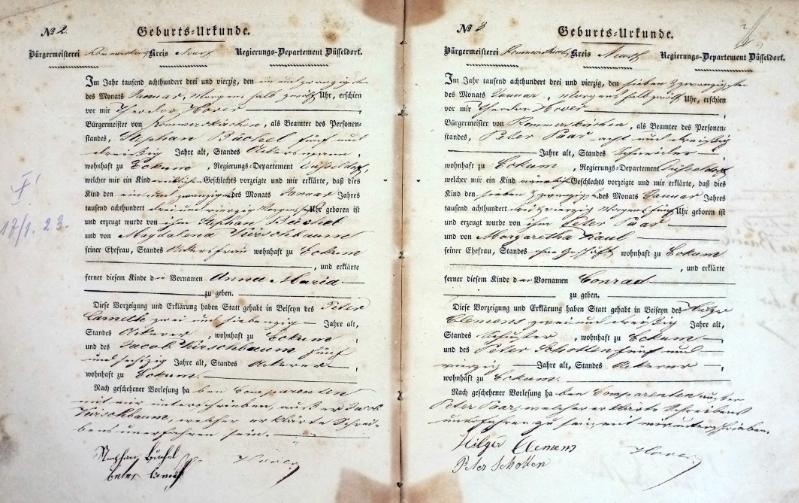 No 2.
Geburts-Urkunde.
Bürgermeisterei Kreis Neuß Regierungs-Departement Düsseldorf.
Im Jahr tausend achthundert drei und vierzig, den
des Monats Januar, Morgens halb Uhr, erschien
vor mir Theodor
Bürgermeister von Rommerskirchen, als Beamter des Personen-
standes, Stephan Büchel fünf und
dreißig Jahre alt, Standes Ackerer
wohnhaft zu Eckum, Regierungs-Departement Düsseldorf,
welcher mir ein Kind Geschlechts vorzeigte und mir erklärte, daß dies
Kind den ein und zwanzigsten des Monats Januar Jahres
tausend achthundert drei und vierzig Uhr geboren ist
und erzeugt wurde von ihm Stephan Büchel
und von Magdalena
seiner Ehefrau, Standes Ackersfrau wohnhaft zu Eckum
, und erklärte
ferner diesem Kinde den Vornamen Anna Maria
zu geben.
Diese Vorzeigung und Erklärung haben Statt gehabt in Beiseyn des Peter
zwei und siebenzig Jahre alt,
Standes Ackerer, wohnhaft zu Eckum
und des Jacob Kirschbaum fünf
und sechszig Jahre alt, Standes Ackerer,
wohnhaft zu Eckum.
Nach geschehener Vorlesung haben Comparenten
mit mir unterschrieben, außer Jacob
Kirschbaum, welcher erklärte Schrei-
bens unerfahren zu sein.
Stephan Büchel
Peter
17/1. 23.
No 3
Geburts-Urkunde.
Bürgermeisterei Kreis Neuß Regierungs-Departement Düsseldorf.
Im Jahr tausend achthundert drei und vierzig, den sieben und zwanzigsten
des Monats Januar, Morgens halb Uhr, erschien
vor mir Theodor
Bürgermeister von Rommerskirchen, als Beamter des Personen-
standes, Peter Paar acht und dreißig
Jahre alt, Standes Schneider
wohnhaft zu Eckum, Regierungs-Departement Düsseldorf,
welcher mir ein Kind männlichen Geschlechts vorzeigte und mir erklärte, daß dies
Kind den sieben und zwanzigsten des Monats Januar Jahres
tausend achthundert drei und vierzig Morgens fünf Uhr geboren ist
und erzeugt wurde von ihm Peter Paar
und von Margaretha Faul
seiner Ehefrau, Standes ohne Geschäft wohnhaft zu Eckum
, und erklärte
ferner diesem Kinde den Vornamen Conrad
zu geben.
Diese Vorzeigung und Erklärung haben Statt gehabt in Beiseyn des Hilger
Clemens zwei und dreißig Jahre alt,
Standes, wohnhaft zu Eckum
und des Peter Schotten fünf und
Jahre alt, Standes Ackerer
wohnhaft zu Eckum.
Nach geschehener Vorlesung haben Comparenten außer
Peter Paar, welcher erklärte Schreibens
unerfahren zu sein, mit mir unterschrieben.
Hilger Clemens
Peter Schotten